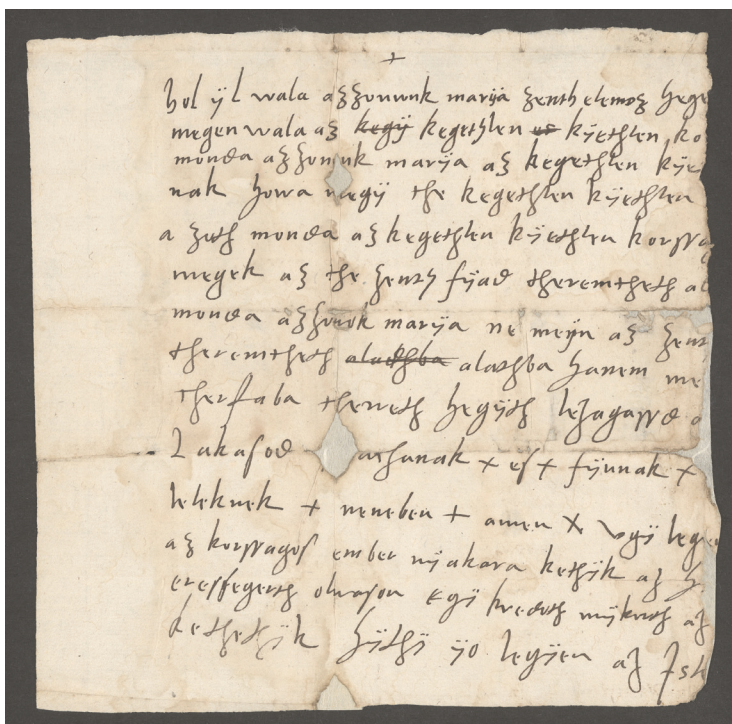 +
hol ÿl wala aʒʒonwnk marÿa ʒenthelemoʒ hege
megen wala aʒ kegÿ kegethlen es kÿethlen ko
monda aʒʒonwnk marÿa aʒ kegethlen kÿe
nak howa megÿ the kegethlen kÿethlen
a ʒuth monda aʒ kegethlen kÿethlen korssa
megek aʒ the ʒenth fÿad theremtheth al
monda aʒʒonok marÿa ne menÿ aʒ ʒent
theremtheth alathba alathba hanem me
therfaba theweth hegÿth leʒagassd a
lakasod athanak + es + fÿunak +
leleknek + neneben + amen + vgÿ leg
aʒ korssagos ember nÿakara kethÿk aʒ
eressegerth oluasson egÿ kredoth mÿknth aʒ
kethethÿk hÿthÿ ÿo legÿen aʒ Ist